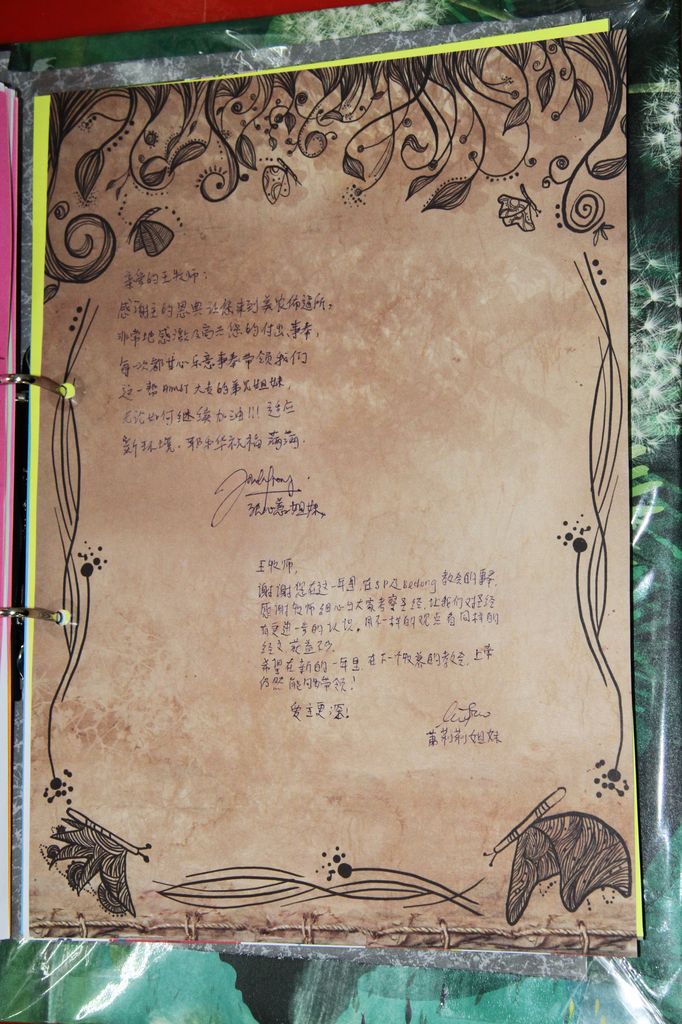 亲爱的王牧师：
感谢主的恩典让您来到美农佈道所，
非常地感激及高兴您的付出事奉，
每次都甘心乐意事奉带领我们
这一帮 大专的弟兄姐妹
无论如何继续加油!!! 适应
新环境. 耶和华祝福满满.
张心蕙姐妹
王牧师，
谢谢您在这一年里，在SP及Bedong教会的事奉，
感谢牧师细心与大家考察圣经，让我们对圣经
有更进一步的认识。用不一样的观点看同样的
经文 获益不少。
希望在新的一年里，在下一个牧养的教会，上帝
仍然 能 带领！
爱主更深！
萧荆荆姐妹